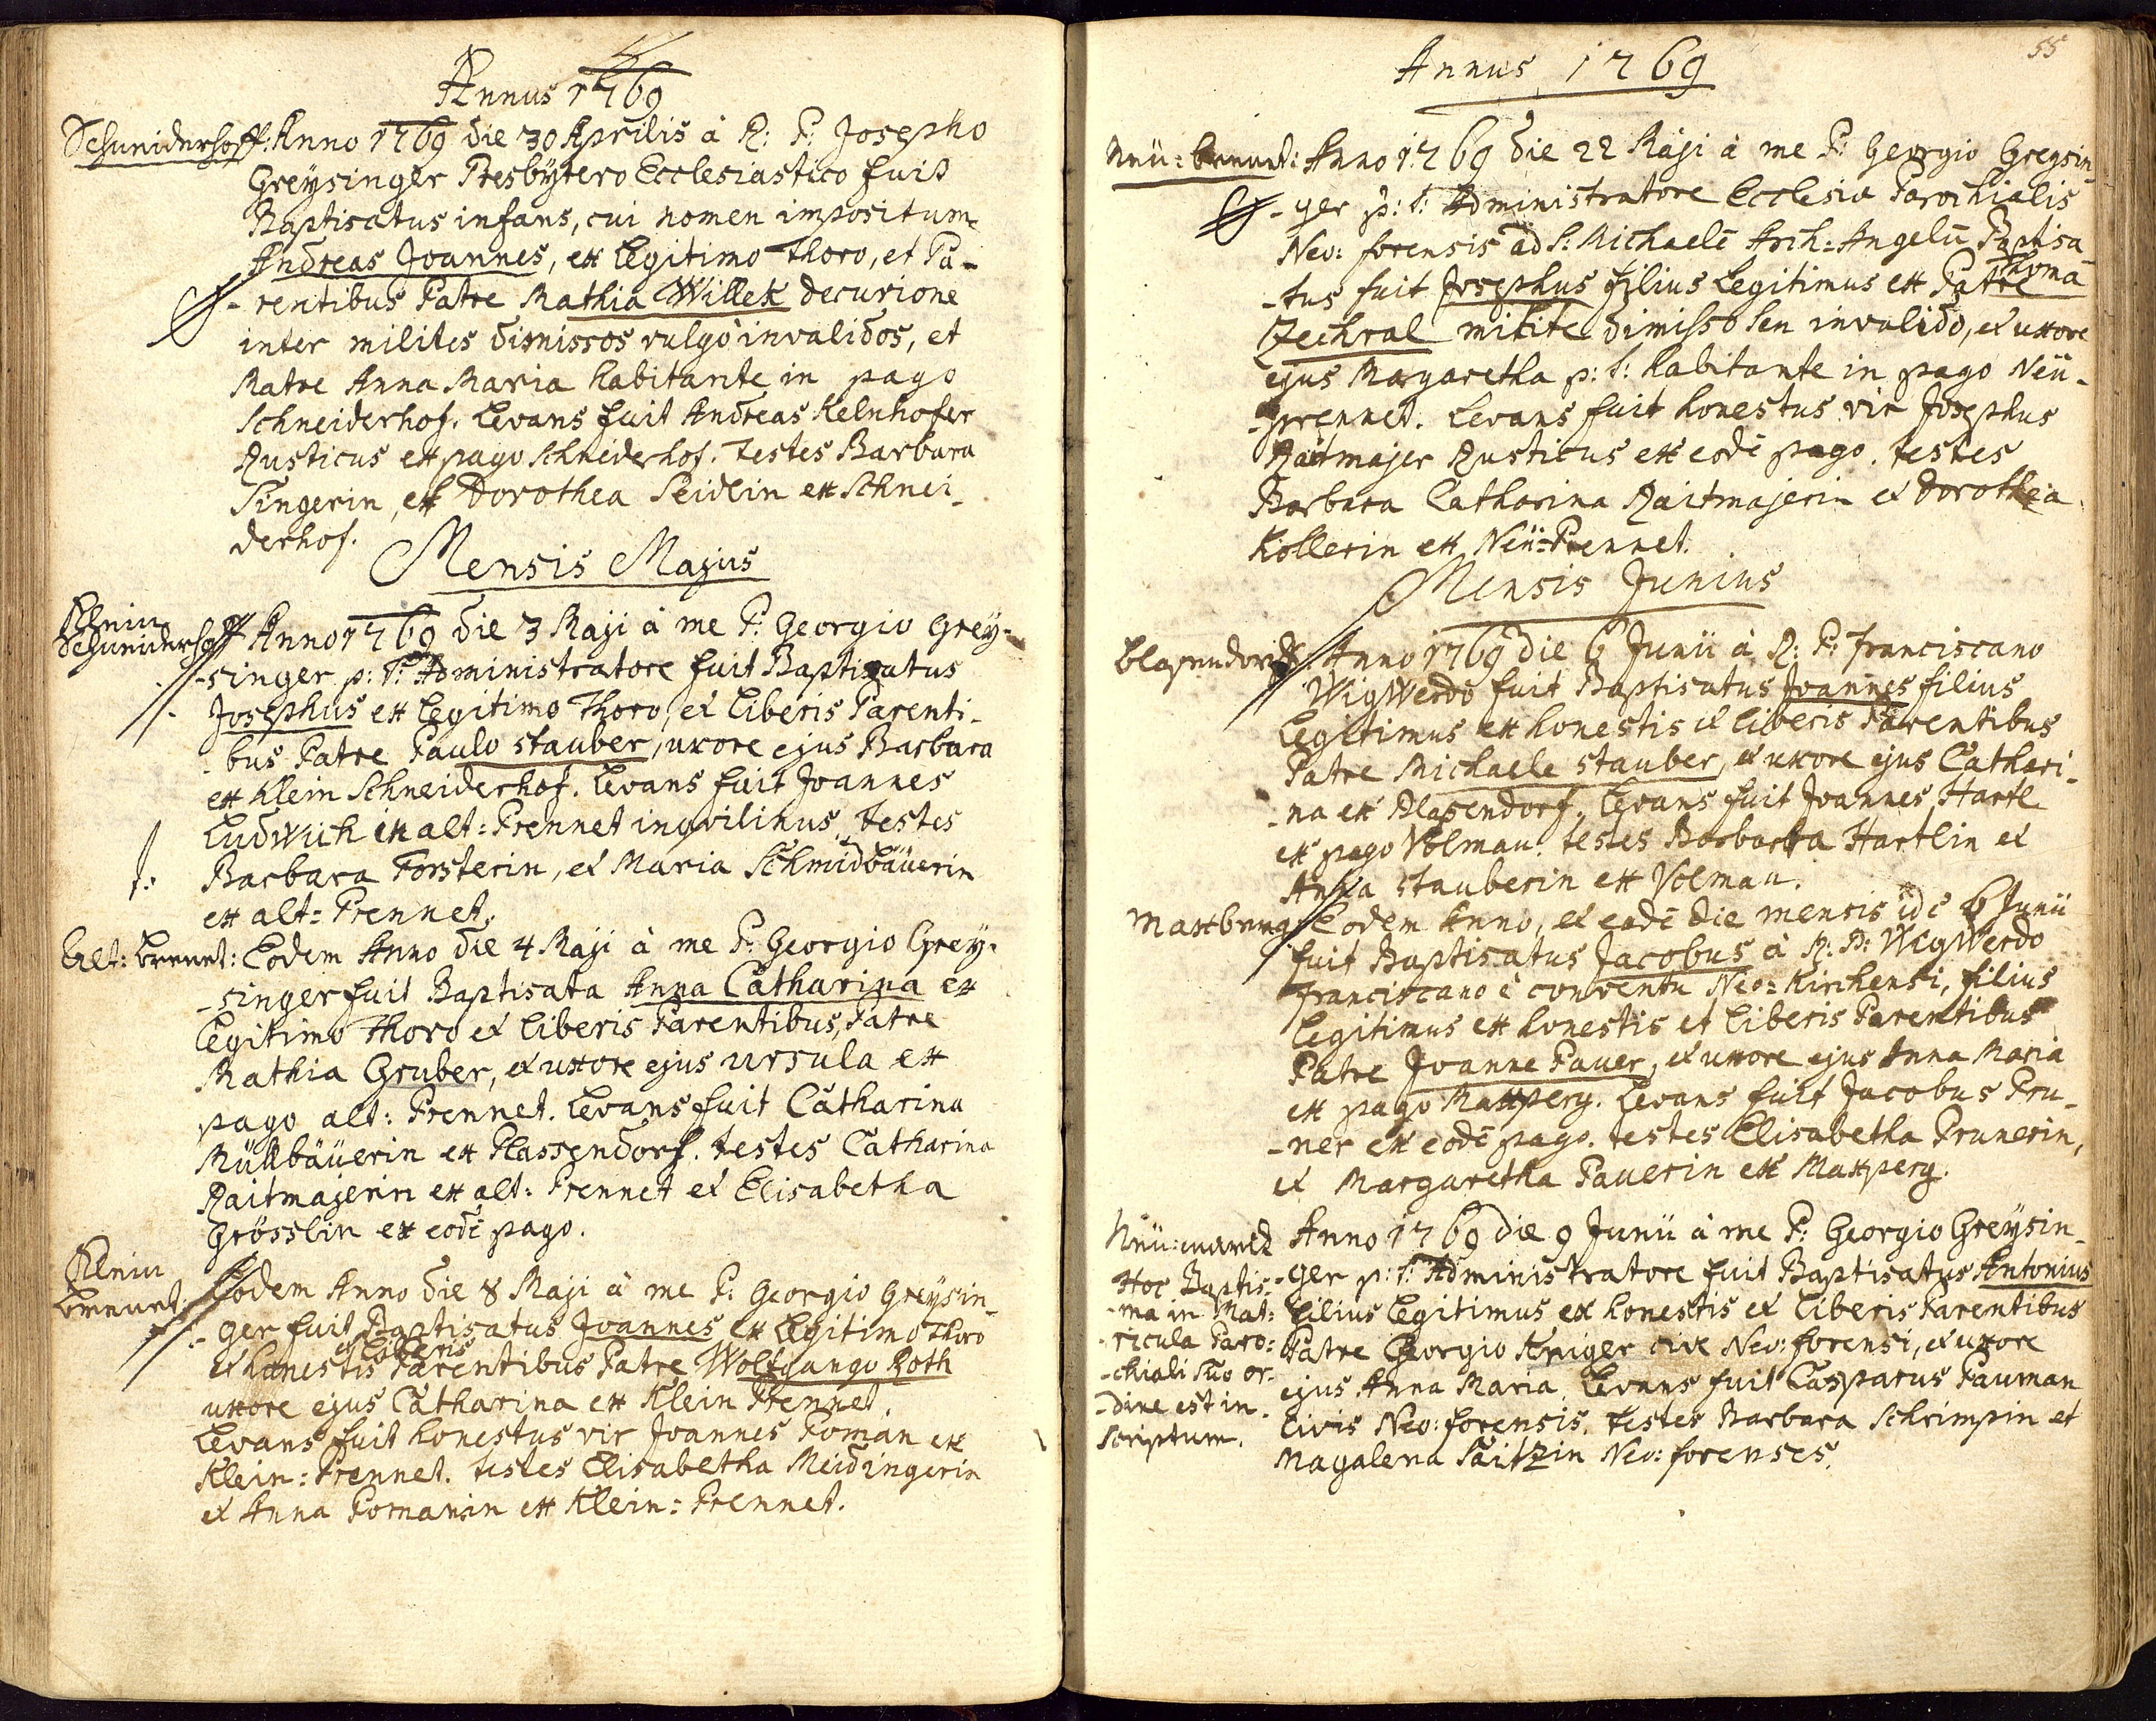 Annus 1769
Schneiderhoff: Anno 1769 die 30 Aprilis à R: P: Josepho
Greÿsinger Presbÿtero Ecclesiastico fuit
Baptisatus infans, cui nomen impositum
Andreas Joannes, ex Legitimo Thoro, et Pa-
-rentibus Patre Mathia Willek decurione
inter milites dismissos vulgò invalidos, et
Matre Anna Maria habitante in pago
Schneiderhof. Levans fuit Andreas Kelnhofer
Rusticus ex pago Schneiderhof. Testes Barbara
Singerin, et Dorothea Seidlin ex Schnei-
derhof.
Mensis Majus
Klein
Schneiderhoff Anno 1769 die 3 Maji à me P: Georgio Greÿ-
-singer p: T: Administratore fuit Baptisatus
Josephus ex Legitimo Thoro, et Liberis Parenti-
-bus Patre Paulo Stauber, uxore ejus Barbara
ex Klein Schneiderhof. Levans fuit Joannes
Ludwich ex alt: Prennet inqvilinus, testes
Barbara Forsterin, et Maria Schmidbäuerin
ex alt: Prennet.
Alt: brennet: Eodem Anno die 4 Maji à me P: Georgio Greÿ-
-singer fuit Baptisata Anna Catharina ex
Legitimo Thoro et Liberis Parentibus, Patre
Mathia Gruber, et uxore ejus Ursula ex
pago alt: Prennet. Levans fuit Catharina
Müllbäuerin ex Plassendorf. testes Catharina
Raitmajerin ex alt: Prennet et Elisabetha
Grösslin ex eodē pago.
Klein
brennet: Eodem Anno die 8 Maji à me P: Georgio Greÿsin-
-ger fuit Baptisatus Joannes ex Legitimo Thoro
et Liberis
et honestis Parentibus Patre Wolfgango Roth
uxore ejus Catharina ex Klein Prennet.
Levans fuit honestus vir Joannes Poman ex
Klein: Prennet. testes Elisabetha Meidingerin
et Anna Pomanin ex Klein: Prennet.
55
Annus 1769
Neü: brennet: Anno 1769 die 22 Maji à me P: Georgio Greÿsin-
-ger p: T: Administratore Ecclesiæ Parochialis
Neo: forensis ad S: Michaelē Arch: Angelū Baptisa-
-tus fuit Josephus filius Legitimus ex Patre Thoma
Zechral milite dimisso seu invalido, et uxore
ejus Margaretha p: T: habitante in pago Neü-
-prennet. Levans fuit honestus vir Josephus
Raitmajer Rusticus ex eodē pago. testes
Barbara Catharina Raitmajerin et Dorothea
Kollerin ex Neü-Prennet.
Mensis Junius
Blasendorff Anno 1769 die 6 Junii à R: P: Franciscano
Wigwerdo fuit Baptisatus Joannes filius
Legitimus ex honestis et Liberis Parentibus
Patre Michaele Stauber, et uxore ejus Cathari-
-na ex Plasendorf. Levans fuit Joannes Hartl
ex pago Volmau. testes Barbara Hartlin et
Anna Stauberin ex Volmau.
Maxberg Eodem Anno, et eodē die mensis idē 6 Junii
fuit Baptisatus Jacobus à R: P: Wigwerdo
Franciscano è conventu Neo: Kirchensi, filius
Legitimus ex honestis et Liberis Parentibus
Patre Joanne Pauer, et uxore ejus Anna Maria
ex pago Maxperg. Levans fuit Jacobus Pru-
-ner ex eodē pago. testes Elisabetha Prunerin,
et Margaretha Pauerin ex Maxperg.
Neü:marck Anno 1769 die 9 Junii à me P: Georgio Greÿsin-
-ger p: T: Administratore fuit Baptisatus Antonius
filius Legitimus ex honestis et Liberis Parentibus
Patre Georgio Kriger cive Neo: forensi, et uxore
ejus Anna Maria. Levans fuit Casparus Pauman
Civis Neo: forensis. testes Barbara Schrimpin et
Magalena Saitzin Neo: forenses.
Hoc Baptis-
-ma in Mat:
-ricula Paro:
-chiali suo or-
-dine est in-
scriptum.